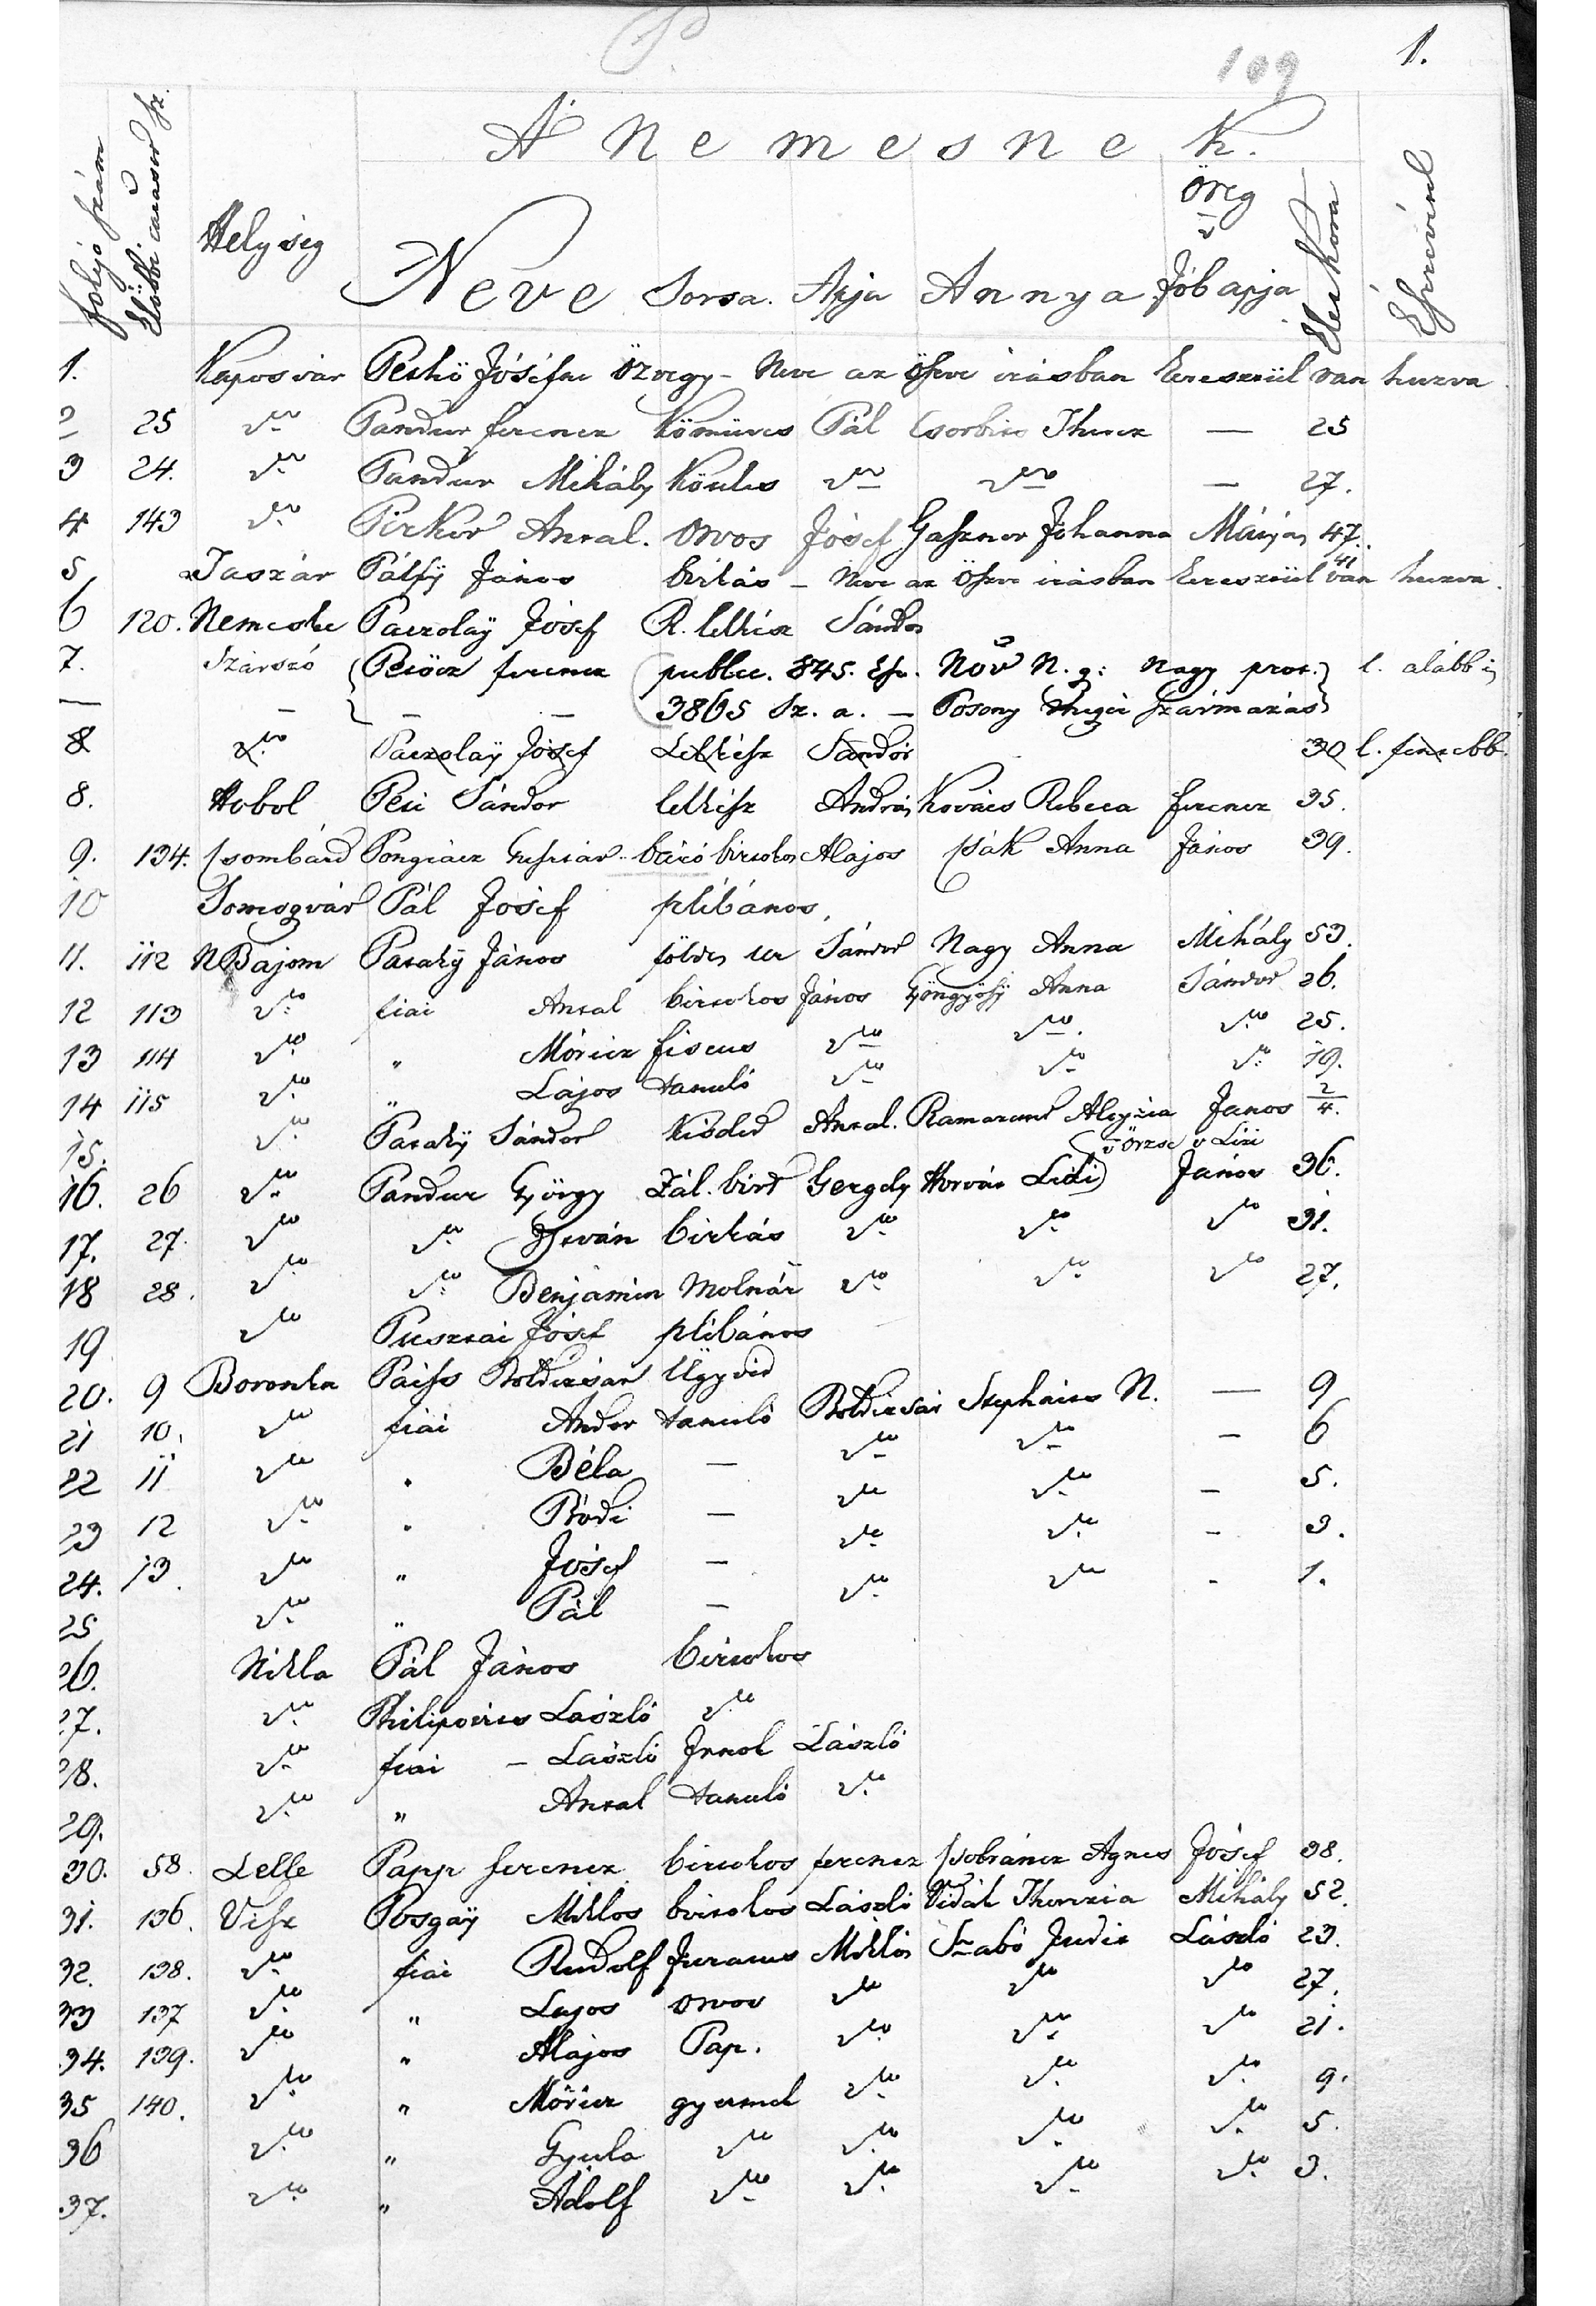 P
109 1.
A Nemesnek.
folyó szám Helység Neve Sorsa. Apja Annya öreg Jób apja Élet kora Észrevétel
1. Kaposvár Petkö Jósefne özvegy - Neve az öszve irásban keresztül van huzva
2 25 do Pandur ferencz kömüves Pál Csorbics Therez — 25
3 24. do Pandur Mihály do do — 27.
4 143 do Pirker Antal. orvos Jósef Johanna 47.
5 Taszár Pálfÿ János birkás - Neve az öszve irásban keresztül van huzva. 41
6 120. Nemeske Paczolaÿ Jósef R. lelkész Sándor
7. Szárszó ferencz publ. 845. N. g: Nagy prot. l. alább is
— — — — 3865 Sz. a. — Posony származás
8 do Paczolaÿ Jósef Lelkész Sándor 30 l. fenebb.
8. Hobol Péti Sándor lelkész András Kovács Rebeca ferencz 35.
9. 134. Csombárd Pongrácz báró birtokos Alajos Csák Anna János 39.
10 Somogyvár Pál Jósef plébános,
11. 112 N Bajom Sárközÿ János földes ur Sándor Nagy Anna Mihály 53.
12 113 do fiai Antal birtokos János Gyöngyösÿ Anna Sándor 26.
13 114 do „ Móricz fiscus do do. do 25.
14 115 do „ Lajos tanuló do do do 19.
15. do Sándor kisded Antal. Aloyzia Janos 2/4.
v Örzse v Lizi
16. 26 do Pandur György Zál. birt Gergely Horvát Lidi János 36.
17. 27. do do István birkás do do do 31.
18 28. do do Benjamin Molnár do do do 27.
19 do Pusztai Jósef plébános
20. 9 Boronka Paiss Boldizsár Ügyvéd
21 10. do fiai Andor tanuló Boldizsár Stephaics N. — 9
22 11 do „ Béla — do do — 6
23 12 do „ Bódi — do do — 5.
24. 13. do „ Jósef — do do - 3.
25 do „ Pál — do do - 1.
26. Nikla Pál János birtokos
27. do Philipovics László do
28. do fiai — László Jrnok László
29. do „ Antal tanuló do
30. 58. Lelle Papp ferencz birtokos ferencz Csobáncz Agnes Jósef 38.
31. 136. Vész Posgaÿ Miklos birtokos László Vidák Therezia Mihály 52.
32. 138. do fiai Rudolf Juratus Miklós Szabó Judit László 23.
33 137 do „ Lajos orvos do do do 27.
34. 139. do „ Alajos Pap. do do do 21.
35 140. do „ Móricz gyermek do do do 9.
36 do „ Gyula do do do do 5.
37. do „ Adolf do do do do 3.